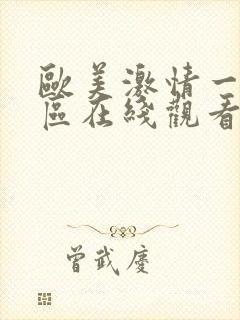 歐美激情一
區在綫觀看
曾武慶